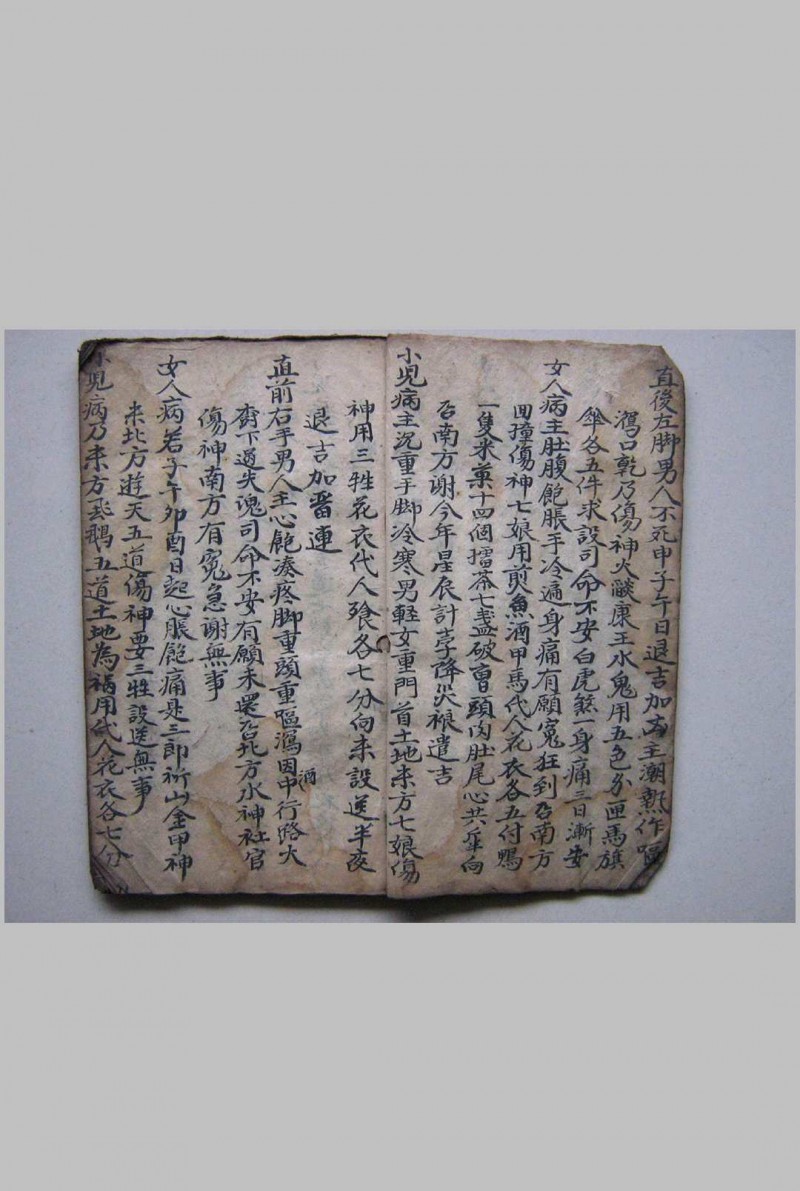 直後左脚男人不死申子午日退吉加凶主潮熱作嘔
瀉口乾乃傷神火燄康王水鬼用五色分匣馬旗
傘各五件求設司命不安白虎煞一身痛三日漸安
女人病主肚腹飽脹手冷遍身痛有願冤狂到召南方
回撞傷神七娘用煎魚酒甲馬代人花衣各五付鴨
一隻米菓十四個擂茶七盞破曹頭肉肚尾心共一向
召南方謝今年星辰計孛降災禳遣吉
小児病主沉重手脚冷寒男輕女重門首土地来方七娘傷
神用三牲花衣代人飱各七分向来設送半夜
退吉加晋連
直前右手男人主心飽凑疼脚重頭重嘔瀉因中酒行路大
廚下過失魂司命不安有願未還召北方水神社官
傷神南方有冤急謝無事
女人病若子午卯酉日起心脹飽痛是三郎祈山金甲神
来北方遊天五道傷神要三牲設送無事
小児病乃来方飛鵝五道土地為禍用代人花衣各七分